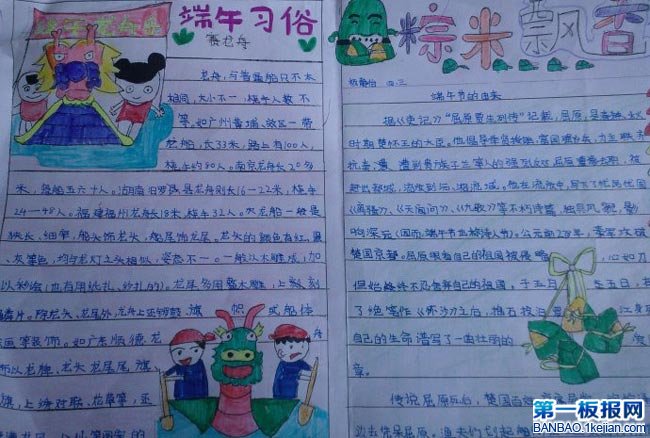 端午习俗
赛龙舟
龙舟,与普通船只不太
相同,大小不一,桡手人数不
一。如广州黄埔、郊区一带
龙船,长33米,路上有100人,
桡手约80人。南宁龙舟长20多
米,每船五六十人。湖南汨罗县龙舟则长16—22米,桡手
24—48人。福建福州龙舟长18米,桡手32人。龙船一般是
狭长、细窄,船头饰龙头,船尾饰龙尾。龙头的颜色有红、黑、
灰等色,均与龙灯之头相似,姿态不一。一般以木雕成,加
以彩绘(也有用纸扎、纱扎的)。龙尾多用整木雕,上刻
鳞片。除龙头、龙尾外,龙舟上还有锣鼓、旗帜或船体
绘画等装饰。如广东顺德龙
旗,上绣对联、花草等,
粽米飘香
四、三
端午节的由来
据《史记》"屈原贾生列传"记载,屈原,是春秋
时期楚怀王的大臣。他倡导举贤授能,富国强兵,力主联齐
抗秦,遭到贵族子兰等人的强烈反对,屈原遭谗去职,被
赶出都城,流放到沅、湘流域。他在流放中,写下了忧国忧民的
《离骚》、《天问》、《九歌》等不朽诗篇,独具风貌,影
响深远(因而,端午节也称诗人节)。公元前278年,秦军攻破
楚国京都。屈原眼看自己的祖国被侵略,心如刀
但始终不忍舍弃自己的祖国,于五月五日,在
了绝笔作《怀沙》之后,抱石投汨江身死
自己的生命谱写了一曲壮丽的
章。
传说屈原死后,楚国百姓
第一板报网
BANBAO.1kejian.com